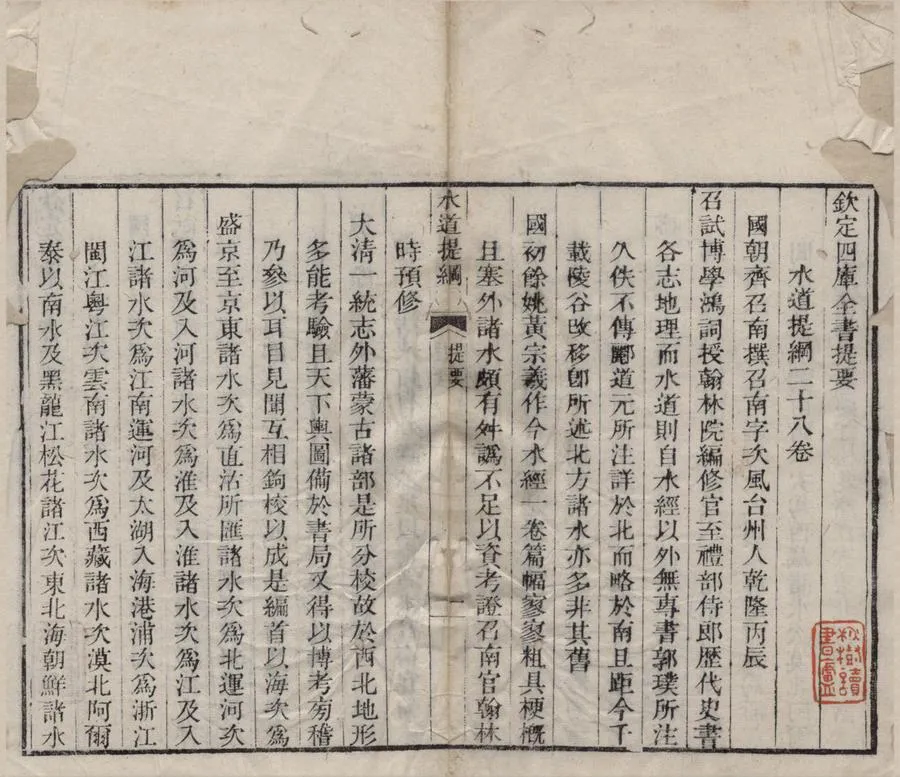 欽定四庫全書提要
水道提綱二十八卷
國朝齊召南撰召南字次風台州人乾隆丙辰
召試博學鴻詞授翰林院編修官至禮部侍郎歷代史書
各志地理而水道則自水經以外無專書郭璞所注
久佚不傳酈道元所注詳於北而略於南且距今千
載陵谷改移卽所述北方諸水亦多非其舊
國初餘姚黃宗羲作今水經一卷篇幅寥寥粗具梗槪
且塞外諸水頗有舛譌不足以資考證召南官翰林
水道提綱
提要
一
時預修
大清一統志外藩蒙古諸部是所分校故於西北地形
多能考驗且天下輿圖備於書局又得以博考旁稽
乃參以耳目見聞互相鉤校以成是編首以海次爲
盛京至京東諸水次爲直沽所匯諸水次爲北運河次
爲河及入河諸水次爲淮及入淮諸水次爲江及入
江諸水次爲江南運河及太湖入海港浦次爲浙江
閩江粵江次雲南諸水次爲西藏諸水次漠北阿爾
泰以南水及黑龍江松花諸江次東北海朝鮮諸水
秋樹讀
書廬